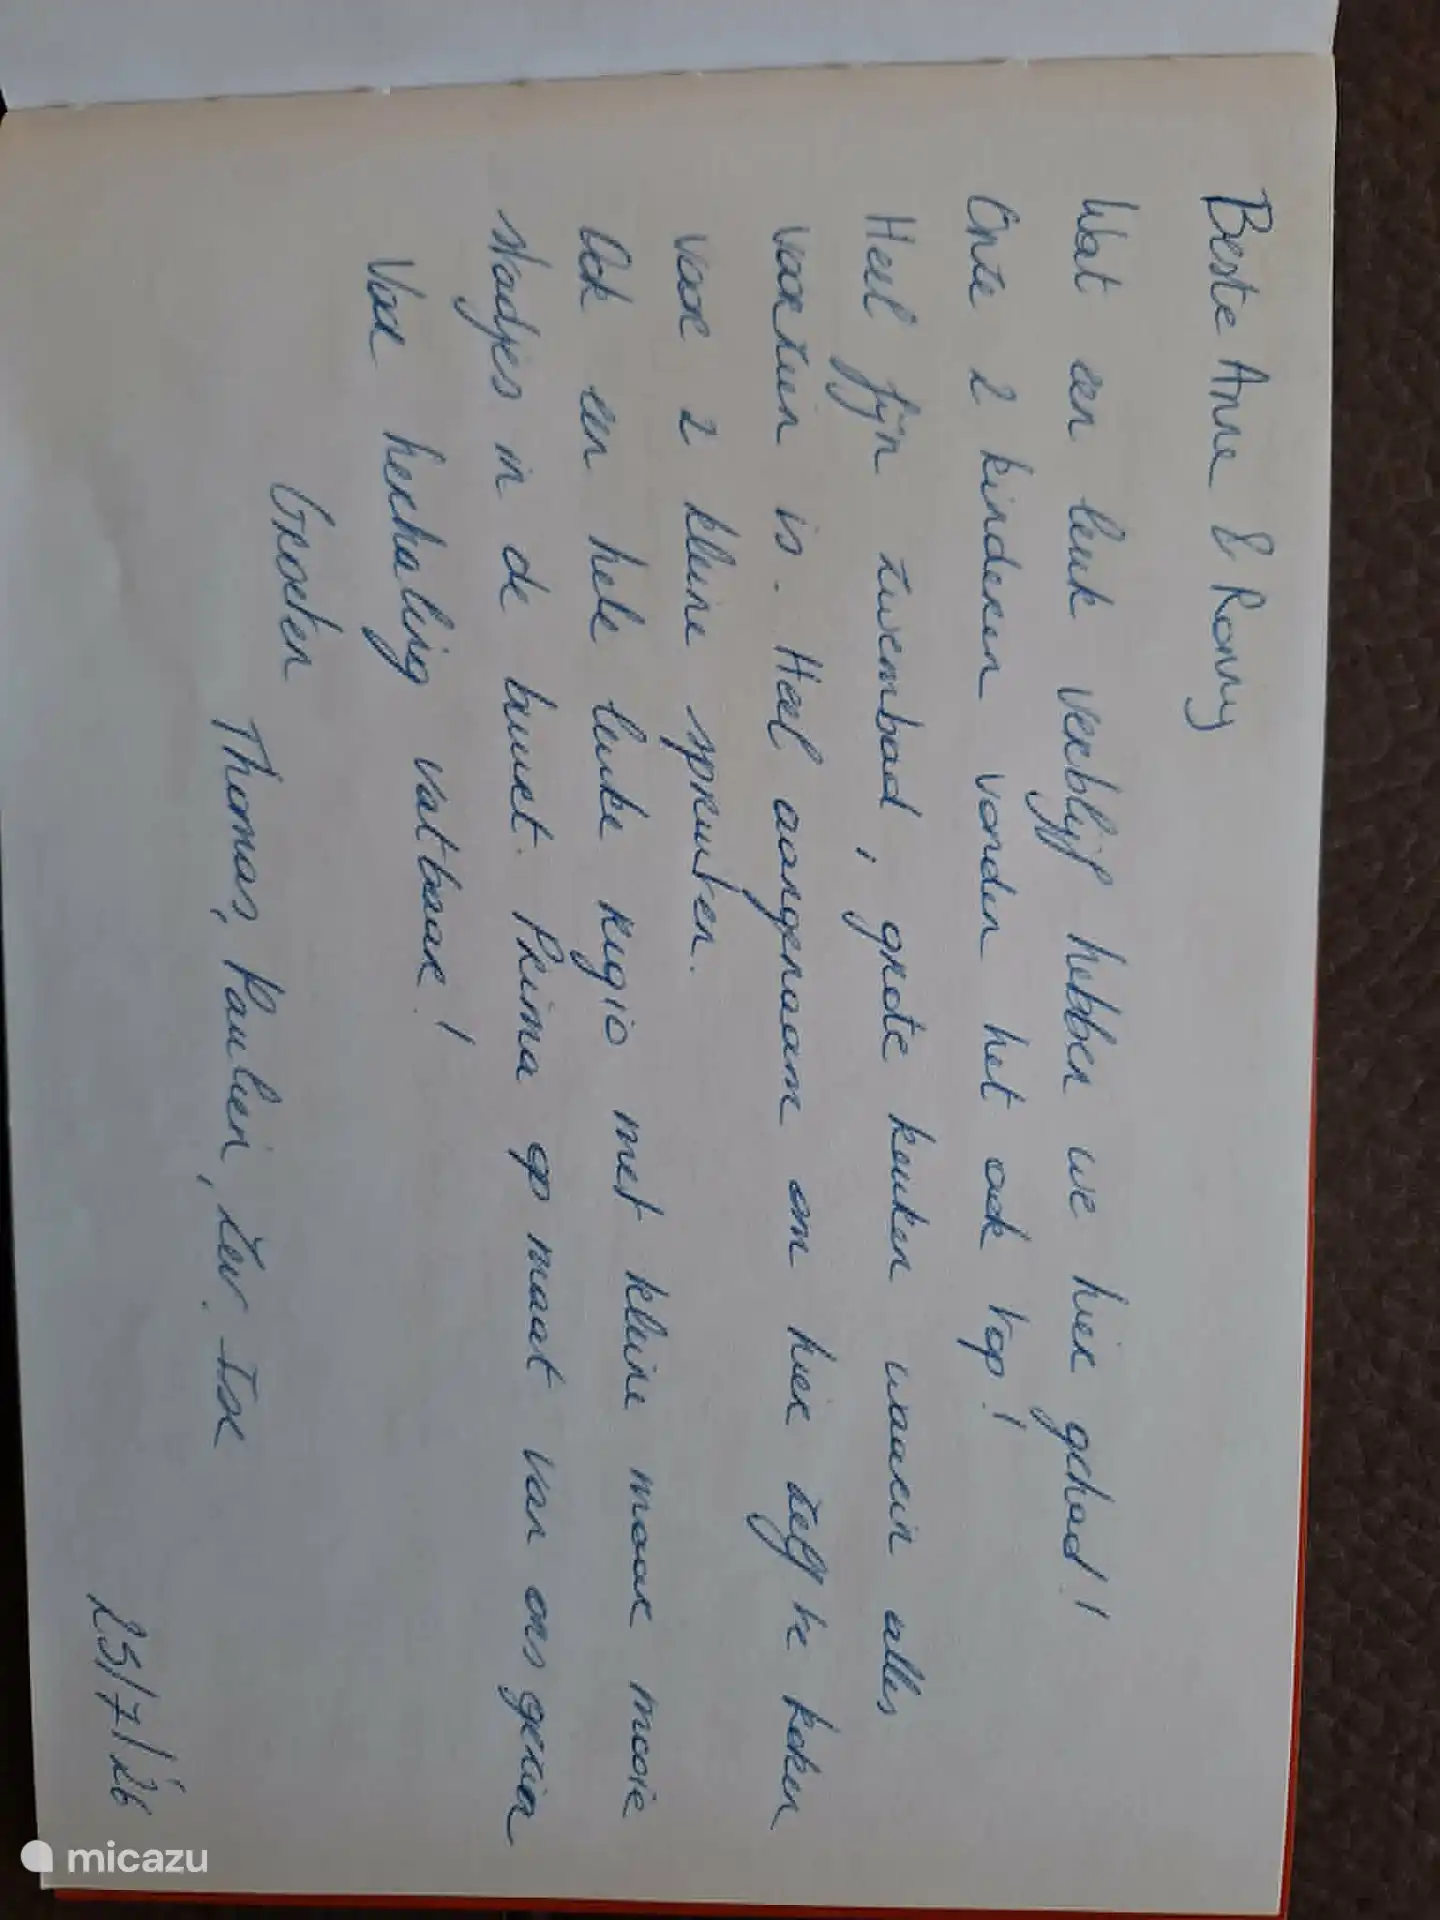 Beste Anne & Ronny
Wat een leuk verblijf hebben we hier gehad!
Onze 2 kinderen vonden het ook top!
Heel fijn zwembad, grote keuken waarin alles
voorzien is. Heel aangenaam om hier zelf te koken
voor 2 kleine spruiten.
Ook een hele leuke regio met kleine maar mooie
stadjes in de buurt. Prima op maat van ons gezin
Voor herhaling vatbaar!
Groeten
Thomas, Paulien,
25/7/26
micazu